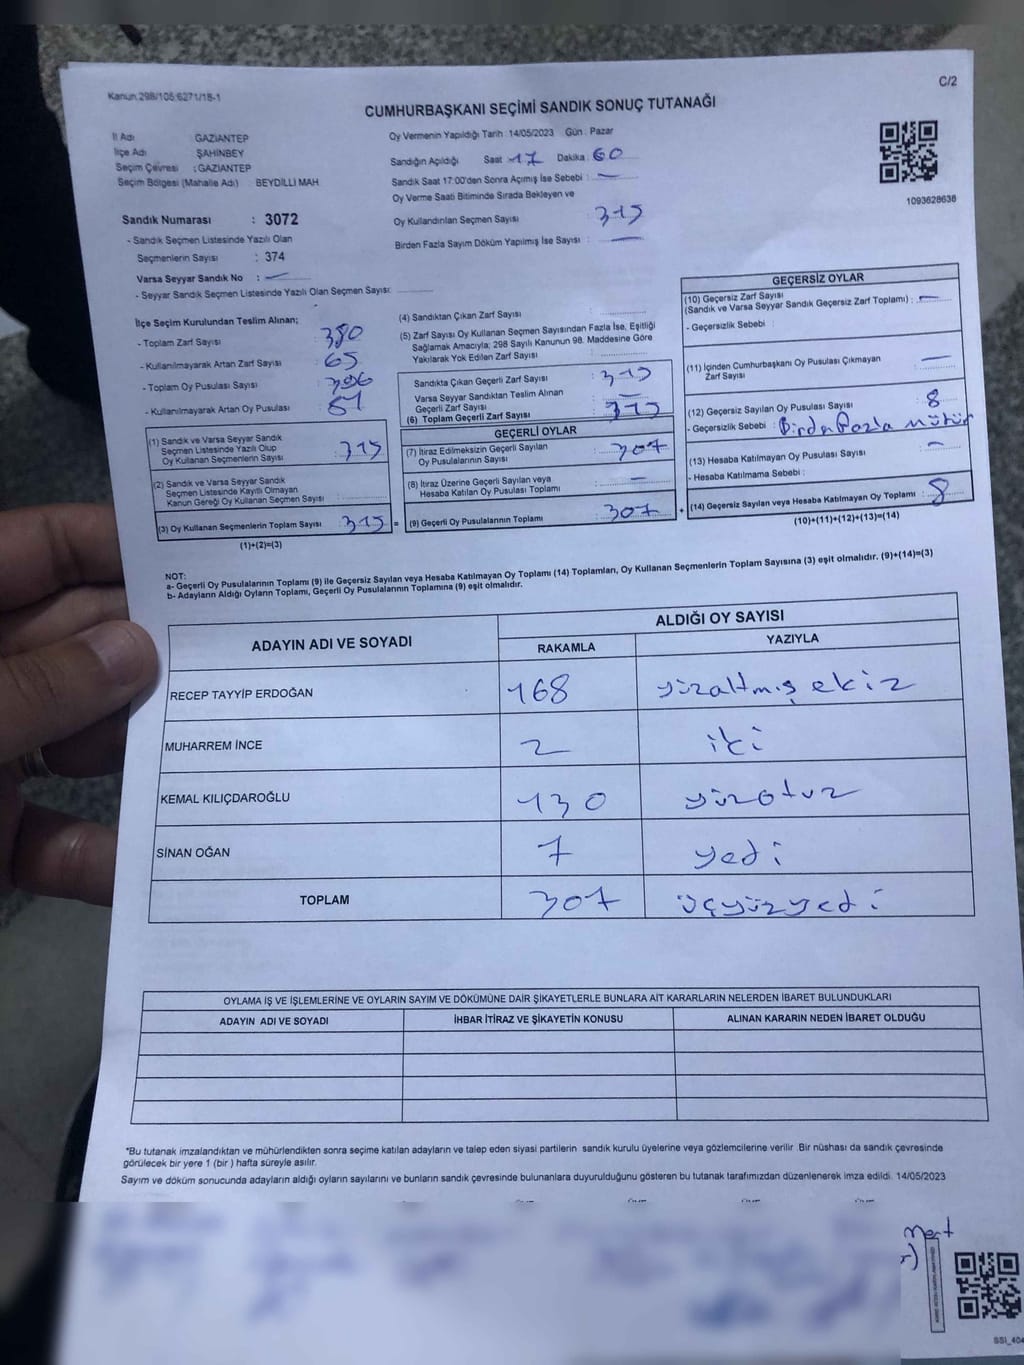 Kanun:298/105:6271/18-1
C/2
CUMHURBAŞKANI SEÇİMİ SANDIK SONUÇ TUTANAĞI
İl Adı GAZİANTEP
İlçe Adı ŞAHİNBEY
Seçim Çevresi : GAZİANTEP
Seçim Bölgesi (Mahalle Adı) : BEYDİLLİ MAH
Sandık Numarası : 3072
- Sandık Seçmen Listesinde Yazılı Olan
Seçmenlerin Sayısı : 374
Varsa Seyyar Sandık No : —
- Seyyar Sandık Seçmen Listesinde Yazılı Olan Seçmen Sayısı:
Oy Vermenin Yapıldığı Tarih : 14/05/2023 Gün : Pazar
Sandığın Açıldığı Saat 17 Dakika 60
Sandık Saat 17:00'den Sonra Açımış İse Sebebi : —
Oy Verme Saati Bitiminde Sırada Bekleyen ve
Oy Kullandırılan Seçmen Sayısı : 315
Birden Fazla Sayım Döküm Yapılmış İse Sayısı : —
1093628638
İlçe Seçim Kurulundan Teslim Alınan;
- Toplam Zarf Sayısı : 380
- Kullanılmayarak Artan Zarf Sayısı : 65
- Toplam Oy Pusulası Sayısı : 396
- Kullanılmayarak Artan Oy Pusulası : 81
(1) Sandık ve Varsa Seyyar Sandık
Seçmen Listesinde Yazılı Olup
Oy Kullanan Seçmenlerin Sayısı : 315
(2) Sandık ve Varsa Seyyar Sandık
Seçmen Listesinde Kayıtlı Olmayan
Kanun Gereği Oy Kullanan Seçmen Sayısı :
(3) Oy Kullanan Seçmenlerin Toplam Sayısı : 315 =
(1)+(2)=(3)
(4) Sandıktan Çıkan Zarf Sayısı :
(5) Zarf Sayısı Oy Kullanan Seçmen Sayısından Fazla İse, Eşitliği
Sağlamak Amacıyla; 298 Sayılı Kanunun 98. Maddesine Göre
Yakılarak Yok Edilen Zarf Sayısı :
Sandıkta Çıkan Geçerli Zarf Sayısı : 315
Varsa Seyyar Sandıktan Teslim Alınan
Geçerli Zarf Sayısı : —
(6) Toplam Geçerli Zarf Sayısı : 315
GEÇERLİ OYLAR
(7) İtiraz Edilmeksizin Geçerli Sayılan
Oy Pusulalarının Sayısı : 307
(8) İtiraz Üzerine Geçerli Sayılan veya
Hesaba Katılan Oy Pusulası Toplamı : —
(9) Geçerli Oy Pusulalarının Toplamı : 307 +
GEÇERSİZ OYLAR
(10) Geçersiz Zarf Sayısı
(Sandık ve Varsa Seyyar Sandık Geçersiz Zarf Toplamı) : —
- Geçersizlik Sebebi :
(11) İçinden Cumhurbaşkanı Oy Pusulası Çıkmayan
Zarf Sayısı : —
(12) Geçersiz Sayılan Oy Pusulası Sayısı : 8
- Geçersizlik Sebebi : Birden Fazla Mühür
(13) Hesaba Katılmayan Oy Pusulası Sayısı : —
- Hesaba Katılmama Sebebi :
(14) Geçersiz Sayılan veya Hesaba Katılmayan Oy Toplamı : 8
(10)+(11)+(12)+(13)=(14)
NOT:
a- Geçerli Oy Pusulalarının Toplamı (9) ile Geçersiz Sayılan veya Hesaba Katılmayan Oy Toplamı (14) Toplamları, Oy Kullanan Seçmenlerin Toplam Sayısına (3) eşit olmalıdır. (9)+(14)=(3)
b- Adayların Aldığı Oyların Toplamı, Geçerli Oy Pusulalarının Toplamına (9) eşit olmalıdır.
ADAYIN ADI VE SOYADI ALDIĞI OY SAYISI
RAKAMLA YAZIYLA
RECEP TAYYİP ERDOĞAN 168 yüzaltmış ekiz
MUHARREM İNCE 2 iki
KEMAL KILIÇDAROĞLU 130 yüzotuz
SİNAN OĞAN 7 yedi
TOPLAM 307 üçyüzyedi
OYLAMA İŞ VE İŞLEMLERİNE VE OYLARIN SAYIM VE DÖKÜMÜNE DAİR ŞİKAYETLERLE BUNLARA AİT KARARLARIN NELERDEN İBARET BULUNDUKLARI
ADAYIN ADI VE SOYADI İHBAR İTİRAZ VE ŞİKAYETİN KONUSU ALINAN KARARIN NEDEN İBARET OLDUĞU
*Bu tutanak imzalandıktan ve mühürlendikten sonra seçime katılan adayların ve talep eden siyasi partilerin sandık kurulu üyelerine veya gözlemcilerine verilir. Bir nüshası da sandık çevresinde
görülecek bir yere 1 (bir ) hafta süreyle asılır.
Sayım ve döküm sonucunda adayların aldığı oyların sayılarını ve bunların sandık çevresinde bulunanlara duyurulduğunu gösteren bu tutanak tarafımızdan düzenlenerek imza edildi. 14/05/2023
Mert
SSI_404